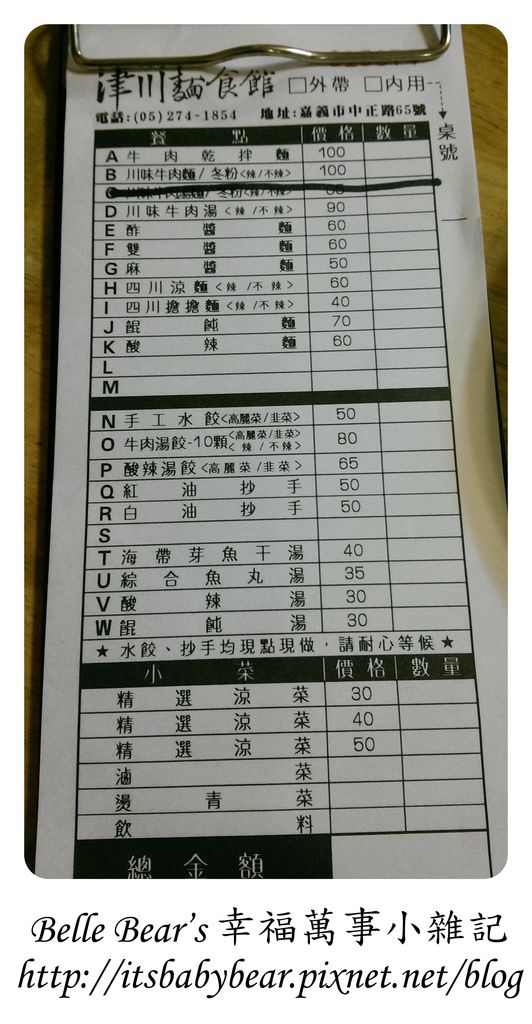 津川麵食館 □外帶 □內用
電話:(05)274-1854 地址:嘉義市中正路65號
桌號
餐點 價格 數量
A 牛肉乾拌麵 100
B 川味牛肉麵/冬粉<辣/不辣> 100
C 川味牛肉湯麵/冬粉<辣/不辣>
D 川味牛肉湯<辣/不辣> 90
E 酢醬麵 60
F 雙醬麵 60
G 麻醬麵 50
H 四川涼麵<辣/不辣> 60
I 四川擔擔麵<辣/不辣> 40
J 餛飩麵 70
K 酸辣麵 60
L
M
N 手工水餃<高麗菜/韭菜> 50
O 牛肉湯餃-10顆<高麗菜/韭菜><辣/不辣> 80
P 酸辣湯餃<高麗菜/韭菜> 65
Q 紅油抄手 50
R 白油抄手 50
S
T 海帶芽魚干湯 40
U 綜合魚丸湯 35
V 酸辣湯 30
W 餛飩湯 30
★水餃、抄手均現點現做,請耐心等候★
小菜 價格 數量
精選涼菜 30
精選涼菜 40
精選涼菜 50
滷菜
燙青菜
飲料
總金額
Belle Bear's 幸福萬事小雜記
http://itsbabybear.pixnet.net/blog